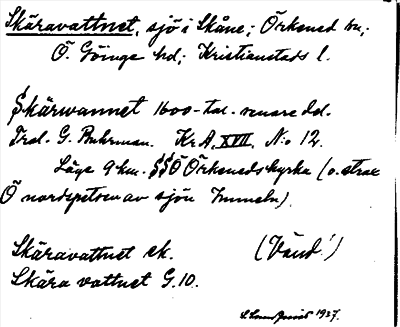 Skäravattnet, sjö i Skåne; Örkened sn;
Ö. Göinge hd; Kristianstads l.
Skärwannet 1600-tal. senare del.
Trol. G. Buhrman. Kr A, XVII, N:o 12.
Läge 9 km. SSÖ Örkeneds kyrka (o. strax
Ö nordspetsen av sjön Immeln).
Skäravattnet ek. (Vänd!)
Skära vattnet G.10.
1927.